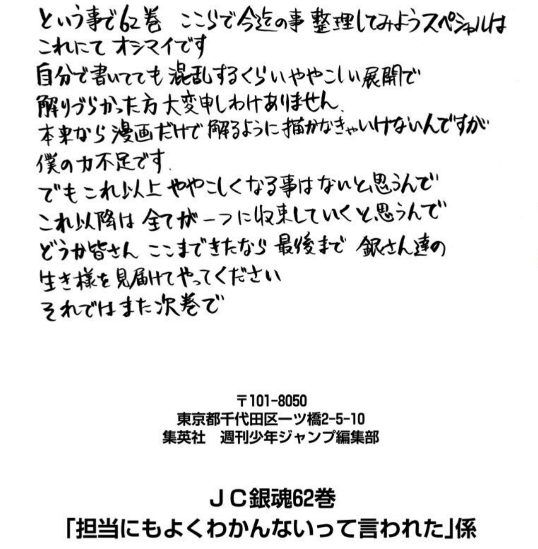 という事で62巻 ここらで今迄の事 整理してみようスペシャルは
これにて オシマイです
自分で書いてても 混乱するくらいややこしい展開で
解りづらかった方大変申しわけありません.
本来なら漫画だけで解るように描かなきゃいけないんですが
僕の力不足です.
でもこれ以上ややこしくなる事はないと思うんで
これ以降は全てが一つに収束していくと思うんで
どうか皆さん ここまできたなら最後まで 銀さん達の
生き様を見届けてやってください
それではまた次巻で
〒101-8050
東京都千代田区一ツ橋2-5-10
集英社 週刊少年ジャンプ編集部
JC銀魂62巻
「担当にもよくわかんないって言われた」係